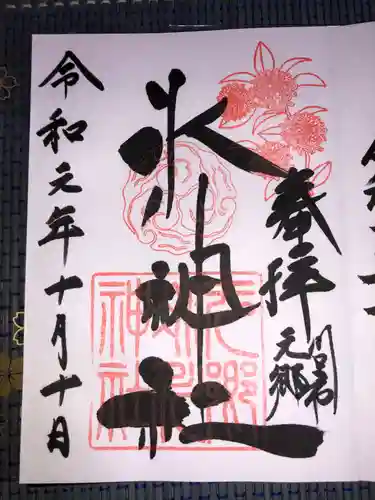 奉拝
川口市
元郷
氷川神社
令和元年十月十日